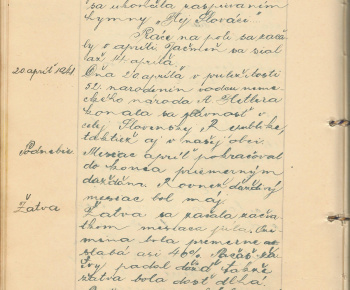 sa ukončila zaspievaním
hymny "Hej Slováci".
Práce na poli sa začaly
v apríli. Jačmeň sa sial
až 14 apríla.
20 apríl 1941
Dňa 20 apríla v príležitosti
52. narodenín vodcu nemeckého
národa A. Hitlera
konala sa slávnosť v
celej Slovenskej Republike,
taktiež aj v našej obci.
Podnebie.
Mesiac apríl pokračoval
do konca priemerným
dažďom. A rovnež daždivý
mesiac bol máj.
Žatva
Žatva sa začala začiatkom
mesiaca júla. Ozimina
bola premerne
slabá asi 40%. Počas žatvy
padal dážď takže
žatva bola dosť dlhá.